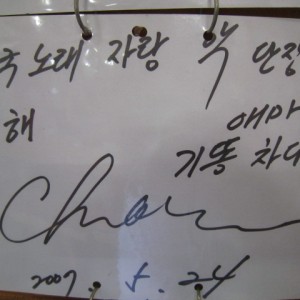 국 노래 자랑 악 단장
해 애마
기똥 차다
2007. 5. 24